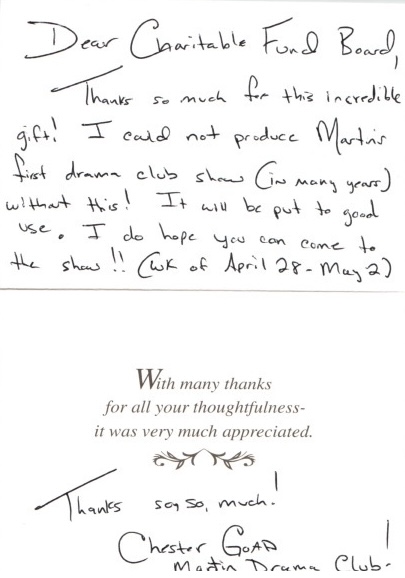 Dear Charitable Fund Board,
Thanks so much for this incredible
gift! I could not produce Martin's
first drama club show (in many years)
without this! It will be put to good
use. I do hope you can come to
the show!! (wk of April 28 - May 2)
With many thanks
for all your thoughtfulness-
it was very much appreciated.
Thanks so, so, much!
Chester Goad
Martin Drama Club!